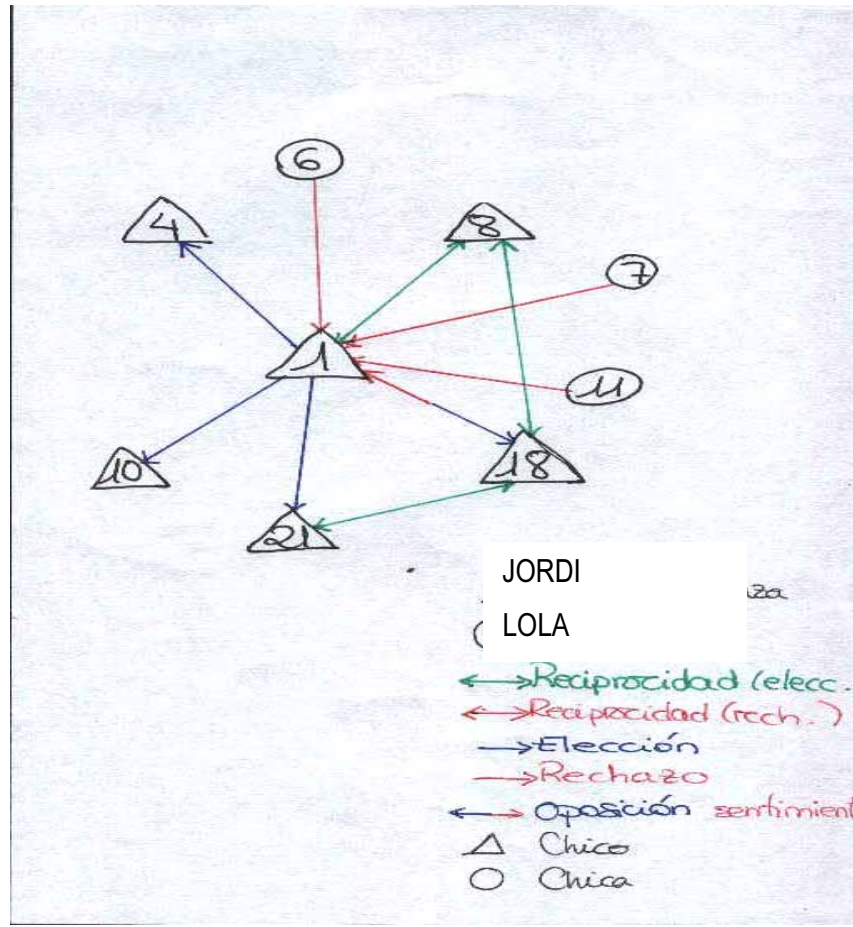 6
4
8
7
1
11
10
18
21
JORDI
LOLA
Reciprocidad (elecc.
Reciprocidad (rech.)
Elección
Rechazo
Oposición sentimient
Chico
Chica